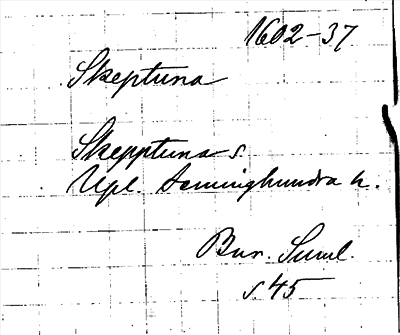 1602-37
Skeptuna
Skepptuna s.
Upl. Seminghundra h.
Bur. Suml.
s. 45